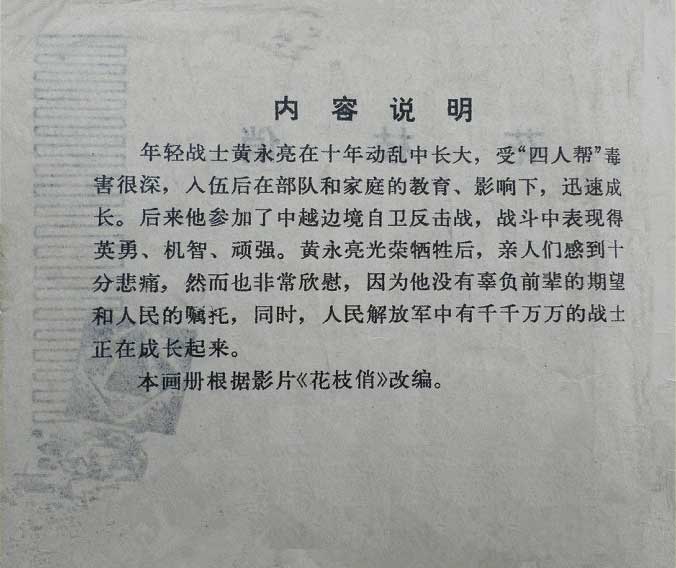 内容说明
年轻战士黄永亮在十年动乱中长大，受“四人帮”毒
害很深，入伍后在部队和家庭的教育、影响下，迅速成
长。后来他参加了中越边境自卫反击战，战斗中表现得
英勇、机智、顽强。黄永亮光荣牺牲后，亲人们感到十
分悲痛，然而也非常欣慰，因为他没有辜负前辈的期望
和人民的嘱托，同时，人民解放军中有千千万万的战士
正在成长起来。
本画册根据影片《花枝俏》改编。